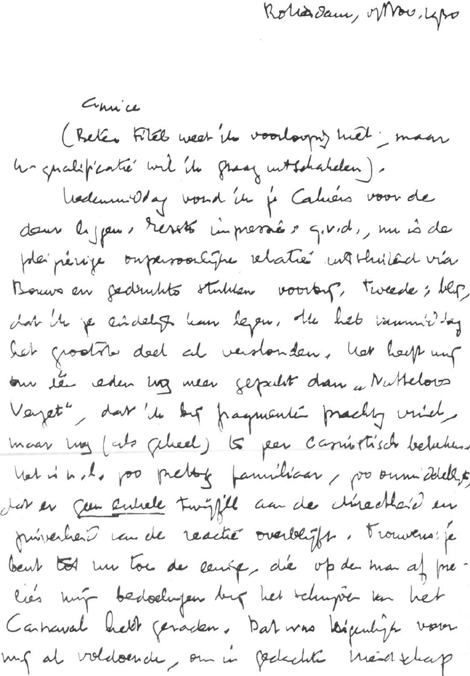 Rotterdam, 17 Nov. 1930
Amice
(Beter titel weet ik voorloopig niet; maar
kwalificatie wil ik graag uitschakelen).
Hedenmiddag vond ik je Cahiers voor de
deur liggen. Eerste impressie: g.v.d., nu is de
plezierige onpersoonlijke relatie uitsluitend via
Bouws en gedrukte stukken voorbij. Tweede: blij,
dat ik je eindelijk kan lezen. Ik heb vanmiddag
het grootste deel al verslonden. Het heeft mij
om één reden nog meer gepakt dan „Nutteloos
Verzet", dat ik bij fragmenten prachtig vind,
maar nog (als geheel) te zeer casuïstisch betoken.
Het is n.l. zoo prettig familiaar, zoo onmiddellijk,
dat er geen enkele twijfel aan de directheid en
zuiverheid van de reactie overblijft. Trouwens: je
bent tot nu toe de eenige, die op den man af pre-
cies mijn bedoelingen bij het schrijven van het
Carnaval hebt geraden. Dat was eigenlijk voor
mij al voldoende, om in gedachte vriendschap